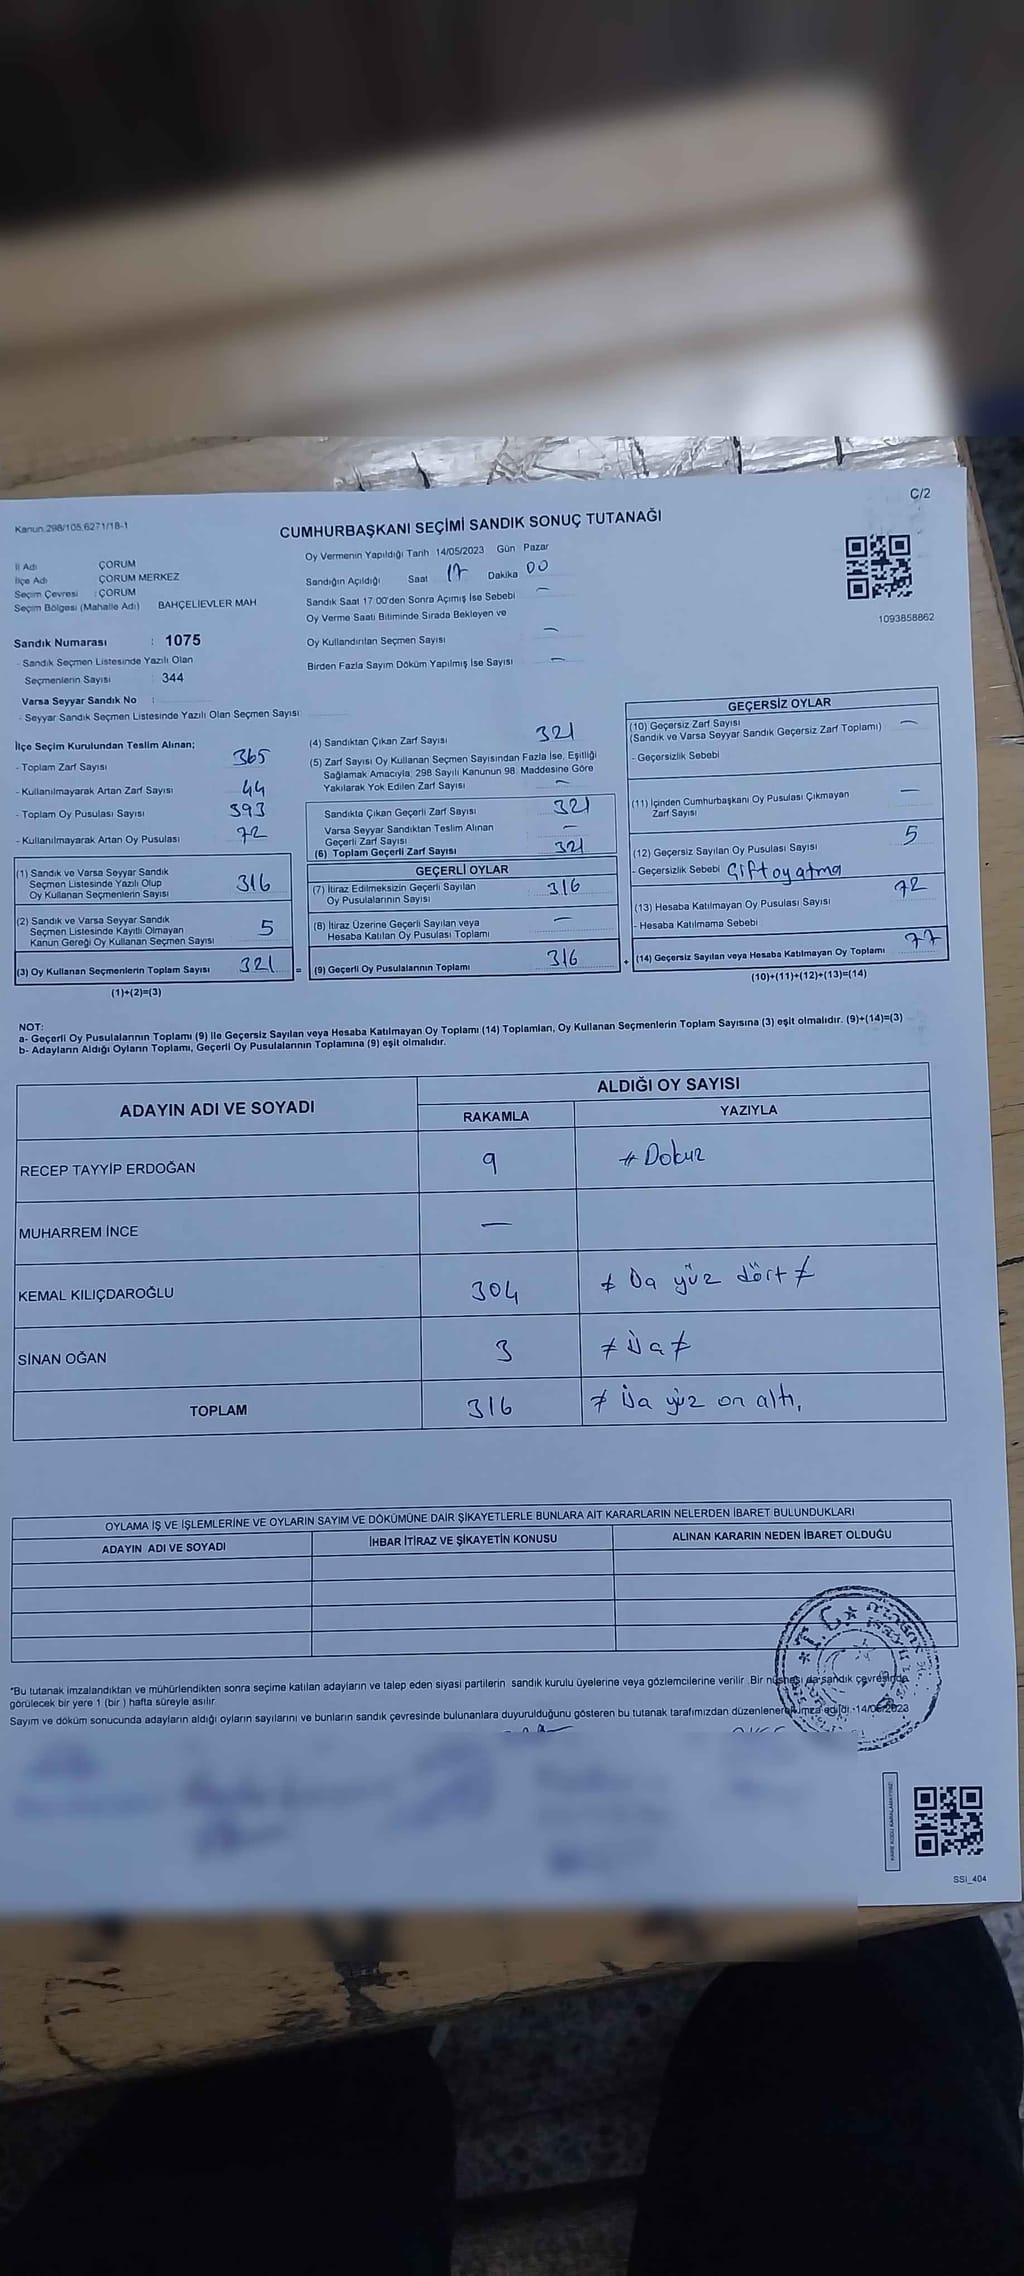 C/2
Kanun 298/105,6271/18-1
CUMHURBAŞKANI SEÇİMİ SANDIK SONUÇ TUTANAĞI
İl Adı ÇORUM
İlçe Adı ÇORUM MERKEZ
Seçim Çevresi : ÇORUM
Seçim Bölgesi (Mahalle Adı) BAHÇELİEVLER MAH
Sandık Numarası : 1075
- Sandık Seçmen Listesinde Yazılı Olan
Seçmenlerin Sayısı 344
Varsa Seyyar Sandık No :
- Seyyar Sandık Seçmen Listesinde Yazılı Olan Seçmen Sayısı
Oy Vermenin Yapıldığı Tarih 14/05/2023 Gün Pazar
Sandığın Açıldığı Saat 17 Dakika 00
Sandık Saat 17:00'den Sonra Açımış İse Sebebi —
Oy Verme Saati Bitiminde Sırada Bekleyen ve
Oy Kullandırılan Seçmen Sayısı —
Birden Fazla Sayım Döküm Yapılmış İse Sayısı —
1093858862
İlçe Seçim Kurulundan Teslim Alınan;
- Toplam Zarf Sayısı 365
- Kullanılmayarak Artan Zarf Sayısı 44
- Toplam Oy Pusulası Sayısı 393
- Kullanılmayarak Artan Oy Pusulası 72
(1) Sandık ve Varsa Seyyar Sandık
Seçmen Listesinde Yazılı Olup
Oy Kullanan Seçmenlerin Sayısı 316
(2) Sandık ve Varsa Seyyar Sandık
Seçmen Listesinde Kayıtlı Olmayan
Kanun Gereği Oy Kullanan Seçmen Sayısı 5
(3) Oy Kullanan Seçmenlerin Toplam Sayısı 321 =
(1)+(2)=(3)
(4) Sandıktan Çıkan Zarf Sayısı 321
(5) Zarf Sayısı Oy Kullanan Seçmen Sayısından Fazla İse, Eşitliği
Sağlamak Amacıyla, 298 Sayılı Kanunun 98. Maddesine Göre
Yakılarak Yok Edilen Zarf Sayısı —
Sandıkta Çıkan Geçerli Zarf Sayısı 321
Varsa Seyyar Sandıktan Teslim Alınan
Geçerli Zarf Sayısı —
(6) Toplam Geçerli Zarf Sayısı 321
GEÇERLİ OYLAR
(7) İtiraz Edilmeksizin Geçerli Sayılan
Oy Pusulalarının Sayısı 316
(8) İtiraz Üzerine Geçerli Sayılan veya
Hesaba Katılan Oy Pusulası Toplamı —
(9) Geçerli Oy Pusulalarının Toplamı 316 +
GEÇERSİZ OYLAR
(10) Geçersiz Zarf Sayısı
(Sandık ve Varsa Seyyar Sandık Geçersiz Zarf Toplamı) —
- Geçersizlik Sebebi
(11) İçinden Cumhurbaşkanı Oy Pusulası Çıkmayan
Zarf Sayısı —
(12) Geçersiz Sayılan Oy Pusulası Sayısı 5
- Geçersizlik Sebebi Çift oy atma
(13) Hesaba Katılmayan Oy Pusulası Sayısı 72
- Hesaba Katılmama Sebebi
(14) Geçersiz Sayılan veya Hesaba Katılmayan Oy Toplamı 77
(10)+(11)+(12)+(13)=(14)
NOT:
a- Geçerli Oy Pusulalarının Toplamı (9) ile Geçersiz Sayılan veya Hesaba Katılmayan Oy Toplamı (14) Toplamları, Oy Kullanan Seçmenlerin Toplam Sayısına (3) eşit olmalıdır. (9)+(14)=(3)
b- Adayların Aldığı Oyların Toplamı, Geçerli Oy Pusulalarının Toplamına (9) eşit olmalıdır.
ADAYIN ADI VE SOYADI ALDIĞI OY SAYISI
RAKAMLA YAZIYLA
RECEP TAYYİP ERDOĞAN 9 # Dokuz
MUHARREM İNCE —
KEMAL KILIÇDAROĞLU 304 ≠ Üç yüz dört ≠
SİNAN OĞAN 3 ≠ Üç ≠
TOPLAM 316 ≠ Üç yüz on altı,
OYLAMA İŞ VE İŞLEMLERİNE VE OYLARIN SAYIM VE DÖKÜMÜNE DAİR ŞİKAYETLERLE BUNLARA AİT KARARLARIN NELERDEN İBARET BULUNDUKLARI
ADAYIN ADI VE SOYADI İHBAR İTİRAZ VE ŞİKAYETİN KONUSU ALINAN KARARIN NEDEN İBARET OLDUĞU
T.C.
*Bu tutanak imzalandıktan ve mühürlendikten sonra seçime katılan adayların ve talep eden siyasi partilerin sandık kurulu üyelerine veya gözlemcilerine verilir. Bir nüshası da sandık çevresinde
görülecek bir yere 1 (bir ) hafta süreyle asılır.
Sayım ve döküm sonucunda adayların aldığı oyların sayılarını ve bunların sandık çevresinde bulunanlara duyurulduğunu gösteren bu tutanak tarafımızdan düzenlenerek imza edildi. 14/05/2023
KARE KODU KARALAMAYINIZ!
SSİ_404